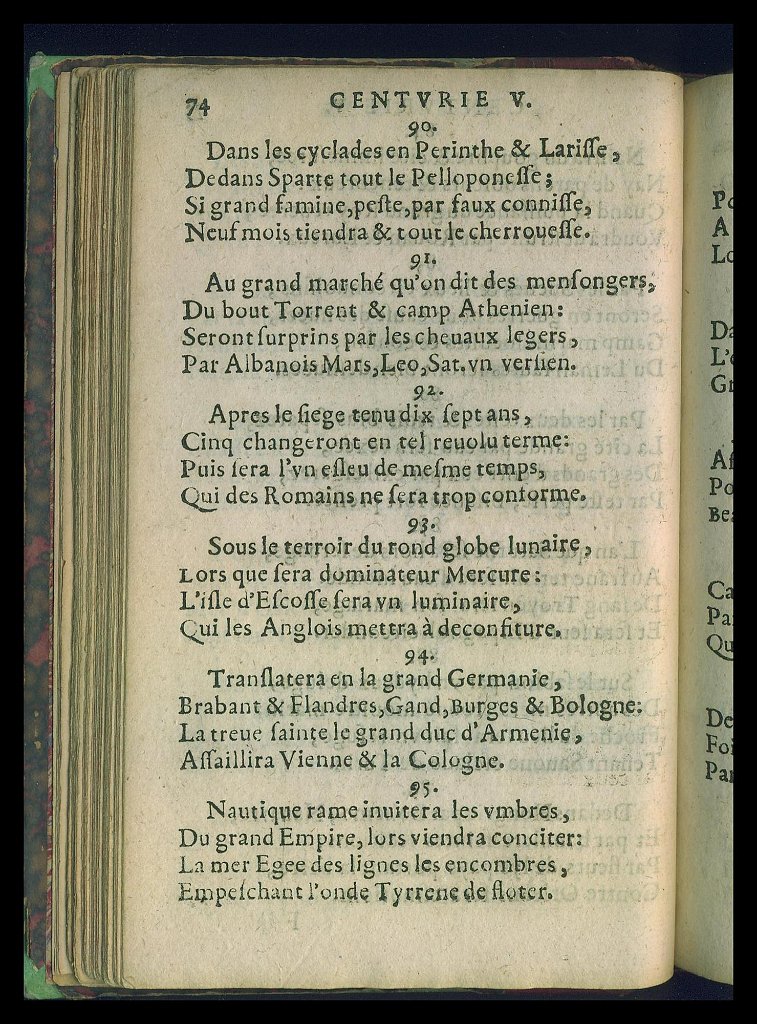 74 CENTVRIE V.
90.
Dans les cyclades en Perinthe & Lariſſe,
Dedans Sparte tout le Pelloponeſſe;
Si grand famine, peſte, par faux conniſſe,
Neuf mois tiendra & tout le cherroueſſe.
91.
Au grand marché qu'on dit des menſongers,
Du bout Torrent & camp Athenien:
Seront ſurprins par les cheuaux legers,
Par Albanois Mars, Leo, Sat. vn verſien.
92.
Apres le ſiege tenu dix ſept ans,
Cinq changeront en tel reuolu terme:
Puis ſera l'vn eſleu de meſme temps,
Qui des Romains ne ſera trop conforme.
93.
Sous le terroir du rond globe lunaire,
Lors que ſera dominateur Mercure:
L'iſle d'Eſcoſſe ſera vn luminaire,
Qui les Anglois mettra à deconfiture.
94.
Tranſlatera en la grand Germanie,
Brabant & Flandres, Gand, Burges & Bologne:
La treue ſainte le grand duc d'Armenie,
Aſſaillira Vienne & la Cologne.
95.
Nautique rame inuitera les vmbres,
Du grand Empire, lors viendra conciter:
La mer Egee des lignes les encombres,
Empeſchant l'onde Tyrrene de floter.